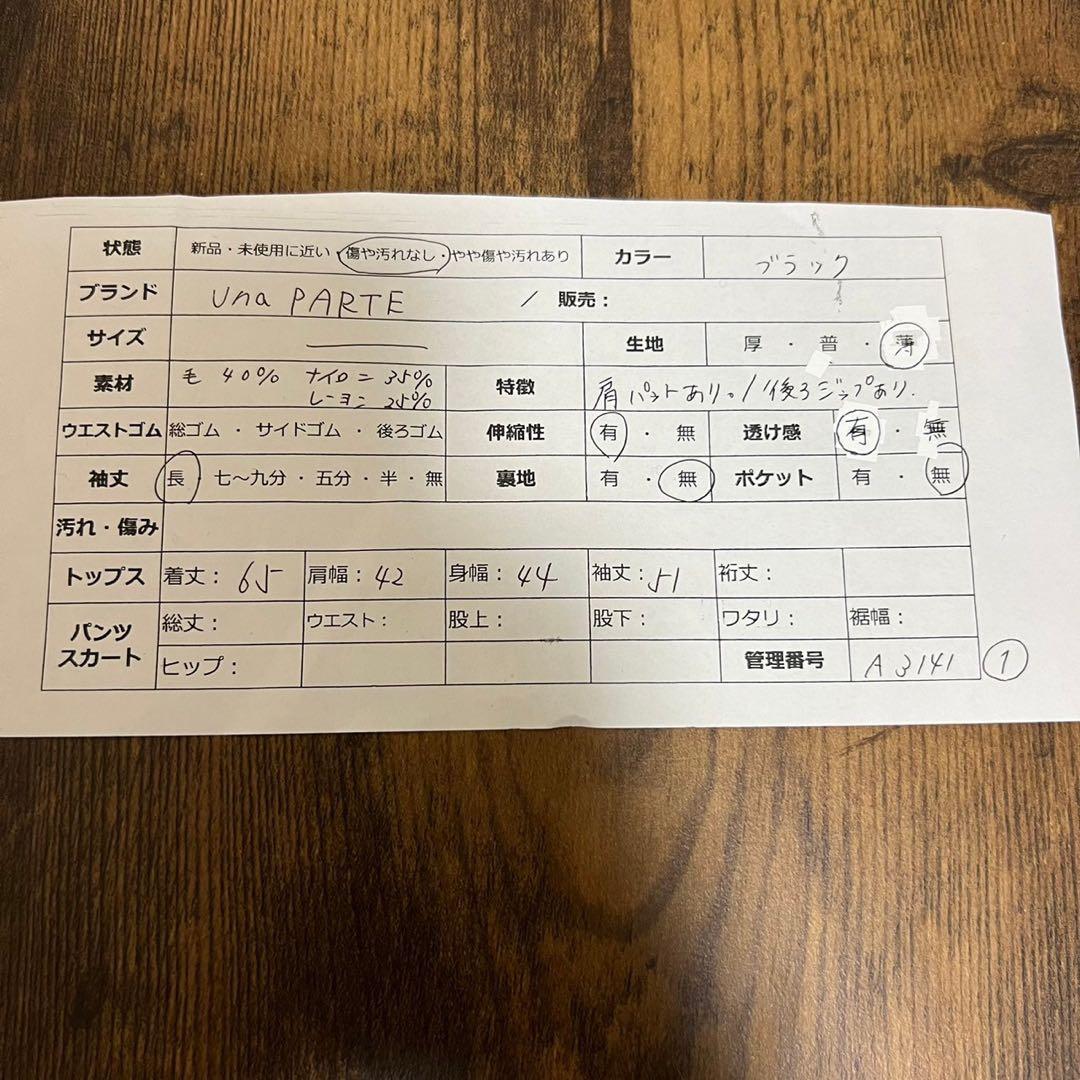 状態 新品・未使用に近い・傷や汚れなし・やや傷や汚れあり カラー ブラック
ブランド una PARTE / 販売：
サイズ 生地 厚・普・薄
素材 毛 40% ナイロン 35% 特徴 肩パットあり。/後ろジップあり.
レーヨン 25%
ウエストゴム 総ゴム・サイドゴム・後ろゴム 伸縮性 有・無 透け感 有・無
袖丈 長・七～九分・五分・半・無 裏地 有・無 ポケット 有・無
汚れ・傷み
トップス 着丈：65 肩幅：42 身幅：44 袖丈：51 裄丈：
パンツ スカート 総丈： ウエスト： 股上： 股下： ワタリ： 裾幅：
ヒップ： 管理番号 A3141 ①